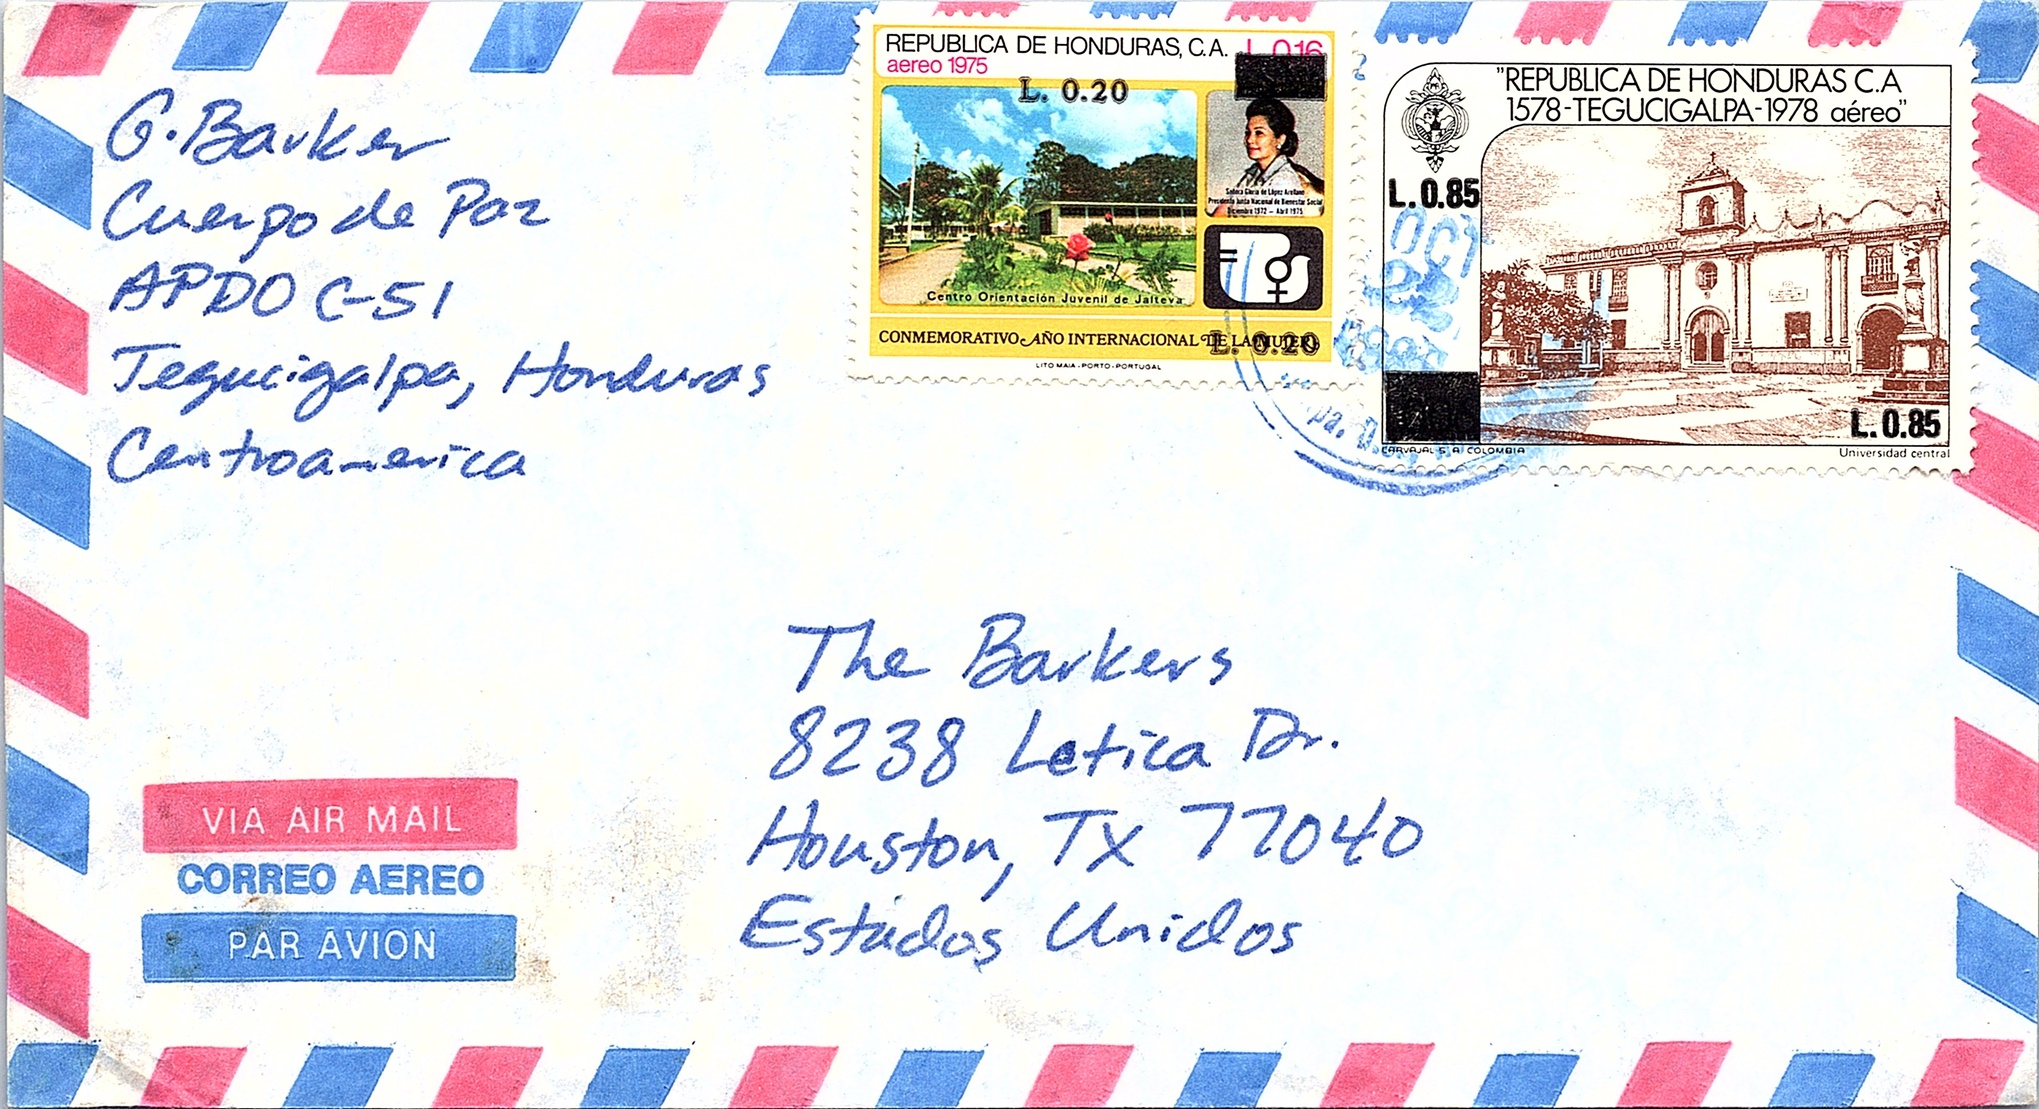 G. Barker
Cuerpo de Paz
APDO C-51
Tegucigalpa, Honduras
Centroamerica
REPUBLICA DE HONDURAS, C.A. L. 0.16
aereo 1975
L. 0.20
Señora Gloria de López Arellano
Presidenta Junta Nacional de Bienestar Social
Diciembre 1972 - Abril 1975
Centro Orientación Juvenil de Jalteva
CONMEMORATIVO AÑO INTERNACIONAL DE LA MUJER
L. 0.20
LITO MAIA - PORTO - PORTUGAL
"REPUBLICA DE HONDURAS C.A
1578-TEGUCIGALPA-1978 aéreo"
L. 0.85
OCT
22
L. 0.85
CARVAJAL S. A. COLOMBIA
Universidad central
The Barkers
8238 Letica Dr.
Houston, TX 77040
Estados Unidos
VIA AIR MAIL
CORREO AEREO
PAR AVION